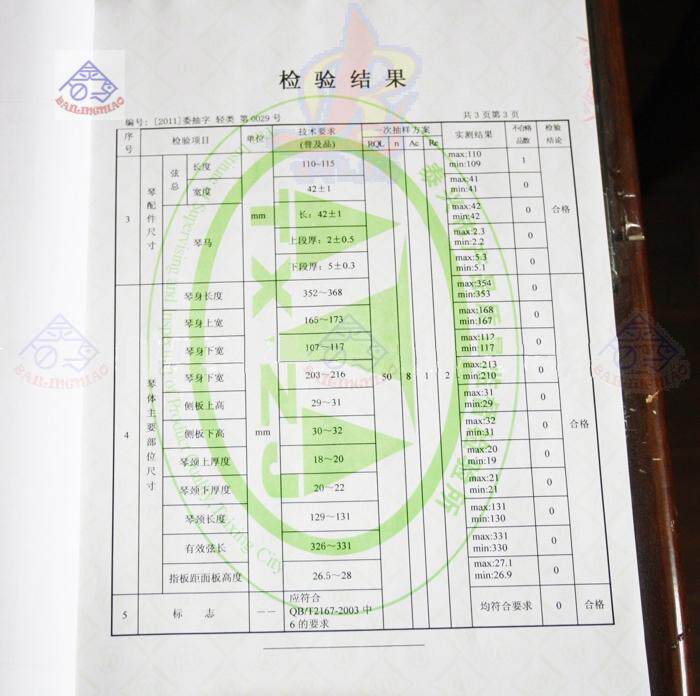 检验结果
编号: [2011]委抽字 轻类 第0029号 共3页第3页
序号 检验项目 单位 技术要求(普及品) 一次抽样方案 RQL n Ac Re 实测结果 不合格品数 检验结论
3 琴配件尺寸 弦总 长度 mm 110~115 max:110 min:109 1 合格
宽度 42±1 max:41 min:41 0
琴马 长: 42±1 max:42 min:42 0
上段厚: 2±0.5 max:2.3 min:2.2 0
下段厚: 5±0.3 max:5.3 min:5.1 0
4 琴体主要部位尺寸 琴身长度 mm 352~368 50 8 1 2 max:354 min:353 0 合格
琴身上宽 165~173 max:168 min:167 0
琴身下宽 107~117 max:117 min:117 0
琴身下宽 203~216 max:213 min:210 0
侧板上高 29~31 max:31 min:29 0
侧板下高 30~32 max:32 min:31 0
琴颈上厚度 18~20 max:20 min:19 0
琴颈下厚度 20~22 max:21 min:21 0
琴颈长度 129~131 max:131 min:130 0
有效弦长 326~331 max:331 min:330 0
指板距面板高度 26.5~28 max:27.1 min:26.9 0
5 标 志 —— 应符合 QB/T2167-2003中 6的要求 均符合要求 0 合格
BAILINGNIAO
BAILINGNIAO
BAILINGNIAO
BAILINGNIAO
PZXT
Taixing City